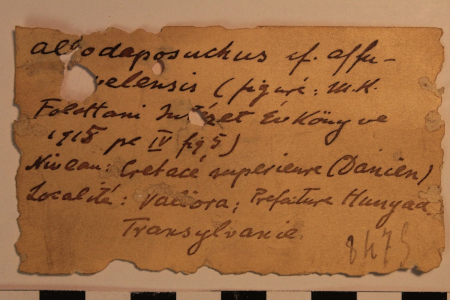 al odaposuchus cf. affu-
velensis (figuré: M.K.
Földtani Intézet Évkönyve
1915 pl IV fig 5)
Niveau: Cretacé superieure (Danien)
Localité: Valiora; Prefecture Hunyad
Transylvanie
8475